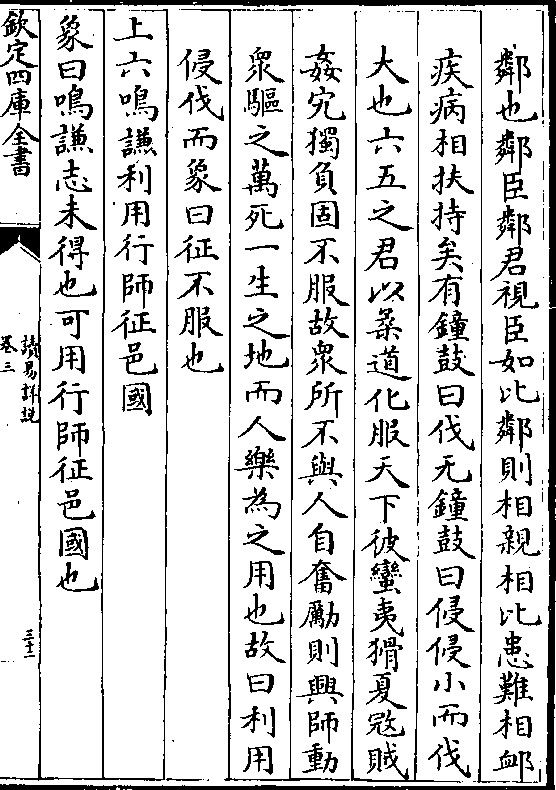 鄰也鄰臣鄰君視臣如比鄰則相親相比患難相卹
疾病相扶持矣有鐘鼓曰伐无鐘鼓曰侵侵小而伐
大也六五之君以柔道化服天下彼蠻夷猾夏宼賊
姦宄獨負固不服故衆所不與人自奮勵則興師動
衆驅之萬死一生之地而人樂為之用也故曰利用
侵伐而象曰征不服也
上六鳴謙利用行師征邑國
象曰鳴謙志未得也可用行師征邑國也
欽定四庫全書
讀易詳說
卷三
三十二